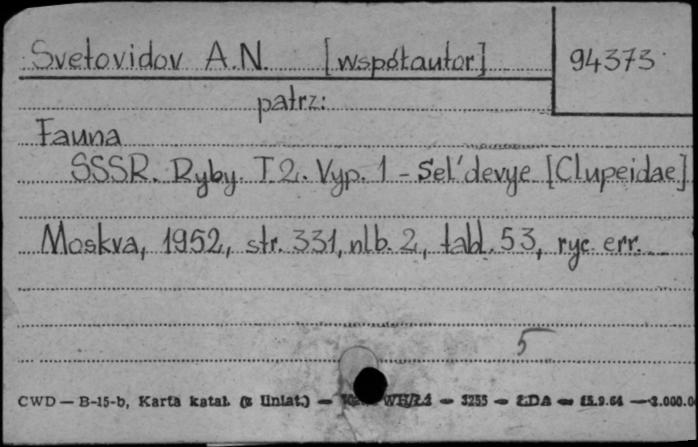 Svetovidov A.N. [współautor] 94373
patrz:
Fauna
SSSR. Ryby. T.2. Vyp. 1 - Sel'devye [Clupeidae]
Moskva, 1952, str. 331, nlb. 2, tabl. 53, ryc. err.
5
CWD — B-15-b, Karta katal. (z liniat.) — — 3255 — ŁDA — 15.9.64 —